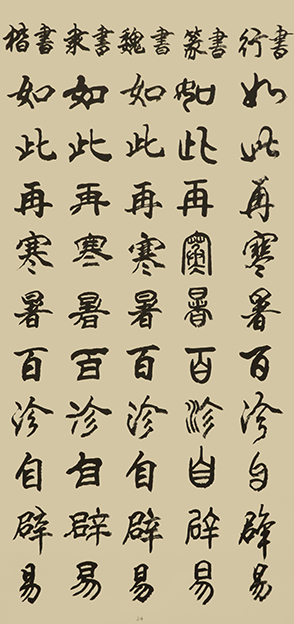 楷書 隶書 魏書 篆書 行書
如此再寒暑百沴自辟易
如此再寒暑百沴自辟易
如此再寒暑百沴自辟易
如此再寒暑百沴自辟易
如此再寒暑百沴自辟易